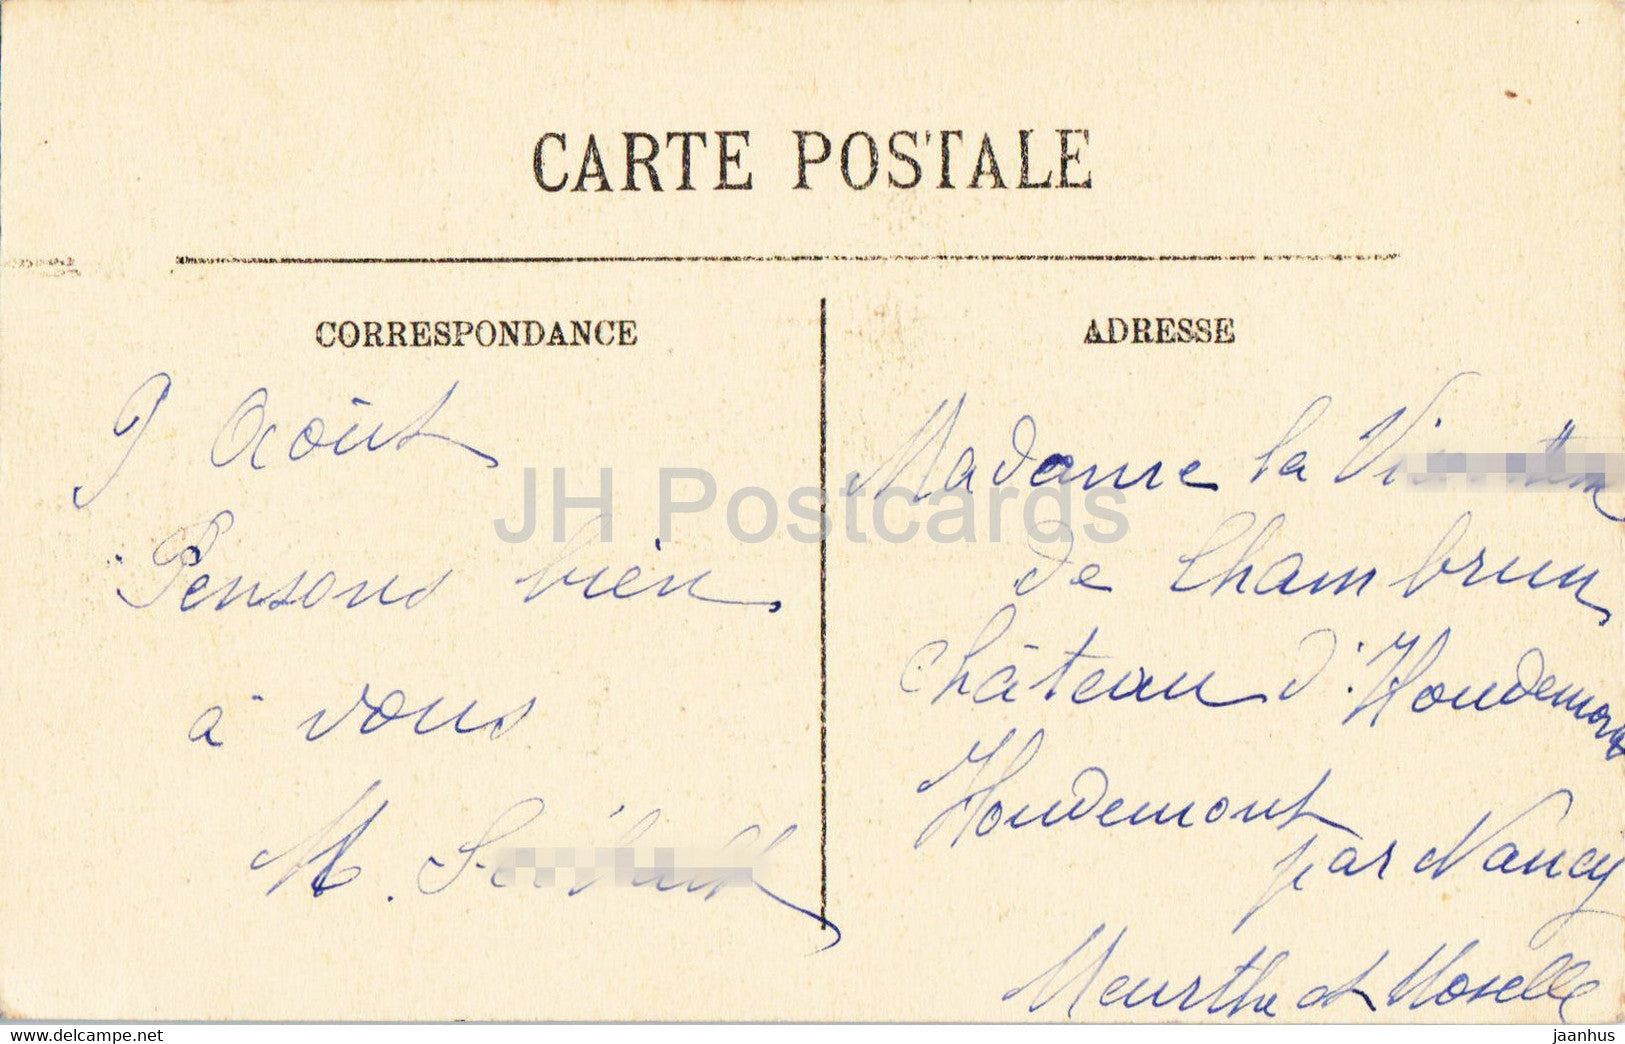 CARTE POSTALE
CORRESPONDANCE
9 Août
Pensons bien
à vous
M.
ADRESSE
Madame la
de Chambrun
château d'Houdemont
Houdemont
par Nancy
Meurthe et Moselle
JH Postcards
hippostcard.com
jaanhus